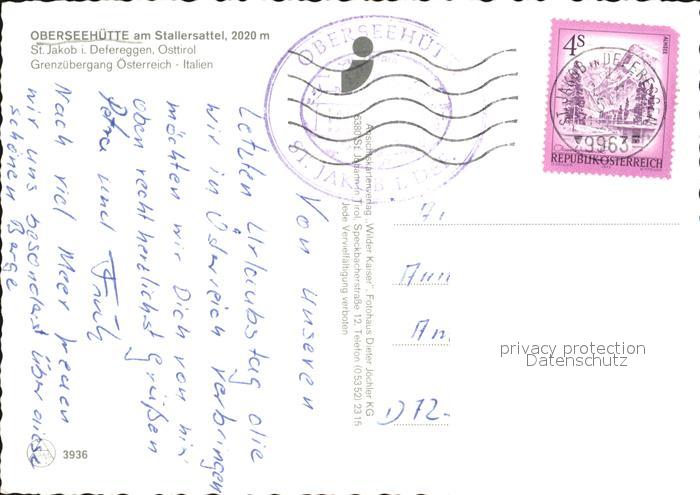 OBERSEEHÜTTE am Stallersattel, 2020 m
St. Jakob i. Defereggen, Osttirol
Grenzübergang Österreich - Italien
OBERSEEHÜTTE
ST. JAKOB I. DEF.
4S
ALMSEE
ST. JAKOB IN DEFEREGGEN
9963
REPUBLIK ÖSTERREICH
Von unseren
letzten Urlaubstag die
wir in Österreich verbringen
möchten wir Dich von hier
oben recht herzlichst grüßen
Petra und
Nach viel Meer freuen
wir uns besonders über diese
schönen Berge
Ansichtskartenverlag „Wilder Kaiser", Fotohaus Dieter Jöchler KG
6380 St. Johann in Tirol, Speckbacherstraße 12, Telefon (05352) 2315
Jede Vervielfältigung verboten
D 72-
privacy protection
Datenschutz
3936